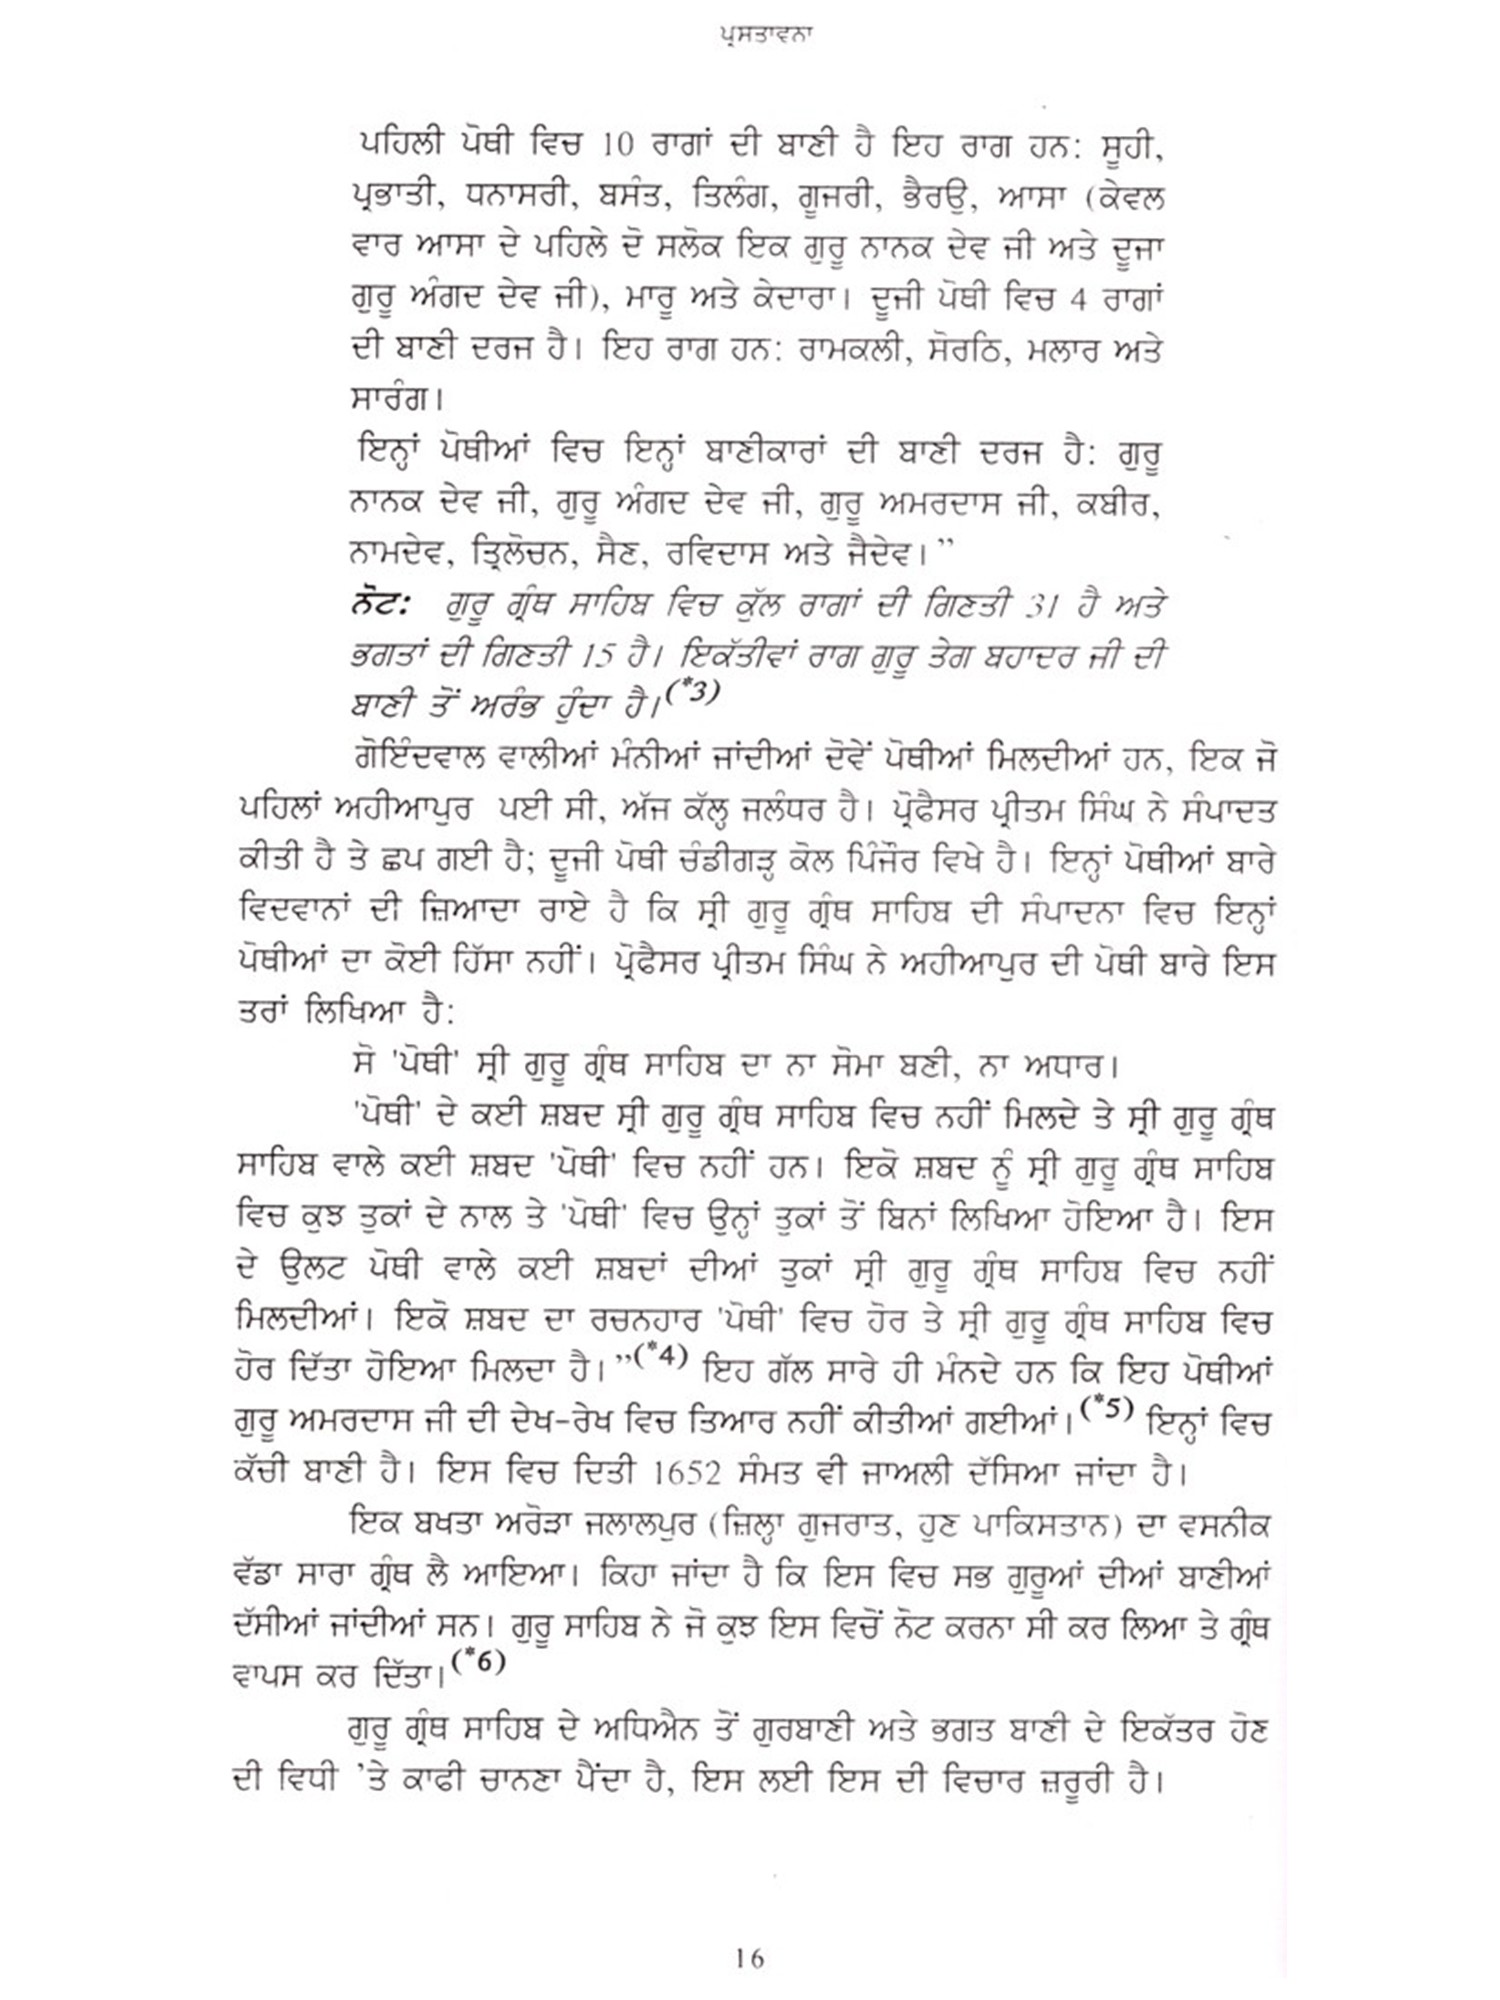 ਪ੍ਰਸਤਾਵਨਾ
ਪਹਿਲੀ ਪੋਥੀ ਵਿਚ 10 ਰਾਗਾਂ ਦੀ ਬਾਣੀ ਹੈ ਇਹ ਰਾਗ ਹਨ: ਸੂਹੀ,
ਪ੍ਰਭਾਤੀ, ਧਨਾਸਰੀ, ਬਸੰਤ, ਤਿਲੰਗ, ਗੂਜਰੀ, ਭੈਰਉ, ਆਸਾ (ਕੇਵਲ
ਵਾਰ ਆਸਾ ਦੇ ਪਹਿਲੇ ਦੋ ਸਲੋਕ ਇਕ ਗੁਰੂ ਨਾਨਕ ਦੇਵ ਜੀ ਅਤੇ ਦੂਜਾ
ਗੁਰੂ ਅੰਗਦ ਦੇਵ ਜੀ), ਮਾਰੂ ਅਤੇ ਕੇਦਾਰਾ। ਦੂਜੀ ਪੋਥੀ ਵਿਚ 4 ਰਾਗਾਂ
ਦੀ ਬਾਣੀ ਦਰਜ ਹੈ। ਇਹ ਰਾਗ ਹਨ: ਰਾਮਕਲੀ, ਸੋਰਠਿ, ਮਲਾਰ ਅਤੇ
ਸਾਰੰਗ।
ਇਨ੍ਹਾਂ ਪੋਥੀਆਂ ਵਿਚ ਇਨ੍ਹਾਂ ਬਾਣੀਕਾਰਾਂ ਦੀ ਬਾਣੀ ਦਰਜ ਹੈ: ਗੁਰੂ
ਨਾਨਕ ਦੇਵ ਜੀ, ਗੁਰੂ ਅੰਗਦ ਦੇਵ ਜੀ, ਗੁਰੂ ਅਮਰਦਾਸ ਜੀ, ਕਬੀਰ,
ਨਾਮਦੇਵ, ਤ੍ਰਿਲੋਚਨ, ਸੈਣ, ਰਵਿਦਾਸ ਅਤੇ ਜੈਦੇਵ। ”
ਨੋਟ: ਗੁਰੂ ਗ੍ਰੰਥ ਸਾਹਿਬ ਵਿਚ ਕੁੱਲ ਰਾਗਾਂ ਦੀ ਗਿਣਤੀ 31 ਹੈ ਅਤੇ
ਭਗਤਾਂ ਦੀ ਗਿਣਤੀ 15 ਹੈ। ਇਕੱਤੀਵਾਂ ਰਾਗ ਗੁਰੂ ਤੇਗ ਬਹਾਦਰ ਜੀ ਦੀ
ਬਾਣੀ ਤੋਂ ਅਰੰਭ ਹੁੰਦਾ ਹੈ।(*3)
ਗੋਇੰਦਵਾਲ ਵਾਲੀਆਂ ਮੰਨੀਆਂ ਜਾਂਦੀਆਂ ਦੋਵੇਂ ਪੋਥੀਆਂ ਮਿਲਦੀਆਂ ਹਨ, ਇਕ ਜੋ
ਪਹਿਲਾਂ ਅਹੀਆਪੁਰ ਪਈ ਸੀ, ਅੱਜ ਕੱਲ੍ਹ ਜਲੰਧਰ ਹੈ। ਪ੍ਰੋਫੈਸਰ ਪ੍ਰੀਤਮ ਸਿੰਘ ਨੇ ਸੰਪਾਦਤ
ਕੀਤੀ ਹੈ ਤੇ ਛਪ ਗਈ ਹੈ; ਦੂਜੀ ਪੋਥੀ ਚੰਡੀਗੜ੍ਹ ਕੋਲ ਪਿੰਜੌਰ ਵਿਖੇ ਹੈ। ਇਨ੍ਹਾਂ ਪੋਥੀਆਂ ਬਾਰੇ
ਵਿਦਵਾਨਾਂ ਦੀ ਜ਼ਿਆਦਾ ਰਾਏ ਹੈ ਕਿ ਸ੍ਰੀ ਗੁਰੂ ਗ੍ਰੰਥ ਸਾਹਿਬ ਦੀ ਸੰਪਾਦਨਾ ਵਿਚ ਇਨ੍ਹਾਂ
ਪੋਥੀਆਂ ਦਾ ਕੋਈ ਹਿੱਸਾ ਨਹੀਂ। ਪ੍ਰੋਫੈਸਰ ਪ੍ਰੀਤਮ ਸਿੰਘ ਨੇ ਅਹੀਆਪੁਰ ਦੀ ਪੋਥੀ ਬਾਰੇ ਇਸ
ਤਰਾਂ ਲਿਖਿਆ ਹੈ:
ਸੋ 'ਪੋਥੀ' ਸ੍ਰੀ ਗੁਰੂ ਗ੍ਰੰਥ ਸਾਹਿਬ ਦਾ ਨਾ ਸੋਮਾ ਬਣੀ, ਨਾ ਅਧਾਰ।
'ਪੋਥੀ' ਦੇ ਕਈ ਸ਼ਬਦ ਸ੍ਰੀ ਗੁਰੂ ਗ੍ਰੰਥ ਸਾਹਿਬ ਵਿਚ ਨਹੀਂ ਮਿਲਦੇ ਤੇ ਸ੍ਰੀ ਗੁਰੂ ਗ੍ਰੰਥ
ਸਾਹਿਬ ਵਾਲੇ ਕਈ ਸ਼ਬਦ 'ਪੋਥੀ' ਵਿਚ ਨਹੀਂ ਹਨ। ਇਕੋ ਸ਼ਬਦ ਨੂੰ ਸ੍ਰੀ ਗੁਰੂ ਗ੍ਰੰਥ ਸਾਹਿਬ
ਵਿਚ ਕੁਝ ਤੁਕਾਂ ਦੇ ਨਾਲ ਤੇ 'ਪੋਥੀ' ਵਿਚ ਉਨ੍ਹਾਂ ਤੁਕਾਂ ਤੋਂ ਬਿਨਾਂ ਲਿਖਿਆ ਹੋਇਆ ਹੈ। ਇਸ
ਦੇ ਉਲਟ ਪੋਥੀ ਵਾਲੇ ਕਈ ਸ਼ਬਦਾਂ ਦੀਆਂ ਤੁਕਾਂ ਸ੍ਰੀ ਗੁਰੂ ਗ੍ਰੰਥ ਸਾਹਿਬ ਵਿਚ ਨਹੀਂ
ਮਿਲਦੀਆਂ। ਇਕੋ ਸ਼ਬਦ ਦਾ ਰਚਨਹਾਰ 'ਪੋਥੀ' ਵਿਚ ਹੋਰ ਤੇ ਸ੍ਰੀ ਗੁਰੂ ਗ੍ਰੰਥ ਸਾਹਿਬ ਵਿਚ
ਹੋਰ ਦਿੱਤਾ ਹੋਇਆ ਮਿਲਦਾ ਹੈ। ”(*4) ਇਹ ਗੱਲ ਸਾਰੇ ਹੀ ਮੰਨਦੇ ਹਨ ਕਿ ਇਹ ਪੋਥੀਆਂ
ਗੁਰੂ ਅਮਰਦਾਸ ਜੀ ਦੀ ਦੇਖ-ਰੇਖ ਵਿਚ ਤਿਆਰ ਨਹੀਂ ਕੀਤੀਆਂ ਗਈਆਂ।(*5) ਇਨ੍ਹਾਂ ਵਿਚ
ਕੱਚੀ ਬਾਣੀ ਹੈ। ਇਸ ਵਿਚ ਦਿਤੀ 1652 ਸੰਮਤ ਵੀ ਜਾਅਲੀ ਦੱਸਿਆ ਜਾਂਦਾ ਹੈ।
ਇਕ ਬਖਤਾ ਅਰੋੜਾ ਜਲਾਲਪੁਰ (ਜ਼ਿਲ੍ਹਾ ਗੁਜਰਾਤ, ਹੁਣ ਪਾਕਿਸਤਾਨ) ਦਾ ਵਸਨੀਕ
ਵੱਡਾ ਸਾਰਾ ਗ੍ਰੰਥ ਲੈ ਆਇਆ। ਕਿਹਾ ਜਾਂਦਾ ਹੈ ਕਿ ਇਸ ਵਿਚ ਸਭ ਗੁਰੂਆਂ ਦੀਆਂ ਬਾਣੀਆਂ
ਦੱਸੀਆਂ ਜਾਂਦੀਆਂ ਸਨ। ਗੁਰੂ ਸਾਹਿਬ ਨੇ ਜੋ ਕੁਝ ਇਸ ਵਿਚੋਂ ਨੋਟ ਕਰਨਾ ਸੀ ਕਰ ਲਿਆ ਤੇ ਗ੍ਰੰਥ
ਵਾਪਸ ਕਰ ਦਿੱਤਾ।(*6)
ਗੁਰੂ ਗ੍ਰੰਥ ਸਾਹਿਬ ਦੇ ਅਧਿਐਨ ਤੋਂ ਗੁਰਬਾਣੀ ਅਤੇ ਭਗਤ ਬਾਣੀ ਦੇ ਇਕੱਤਰ ਹੋਣ
ਦੀ ਵਿਧੀ ’ਤੇ ਕਾਫੀ ਚਾਨਣਾ ਪੈਂਦਾ ਹੈ, ਇਸ ਲਈ ਇਸ ਦੀ ਵਿਚਾਰ ਜ਼ਰੂਰੀ ਹੈ।
16